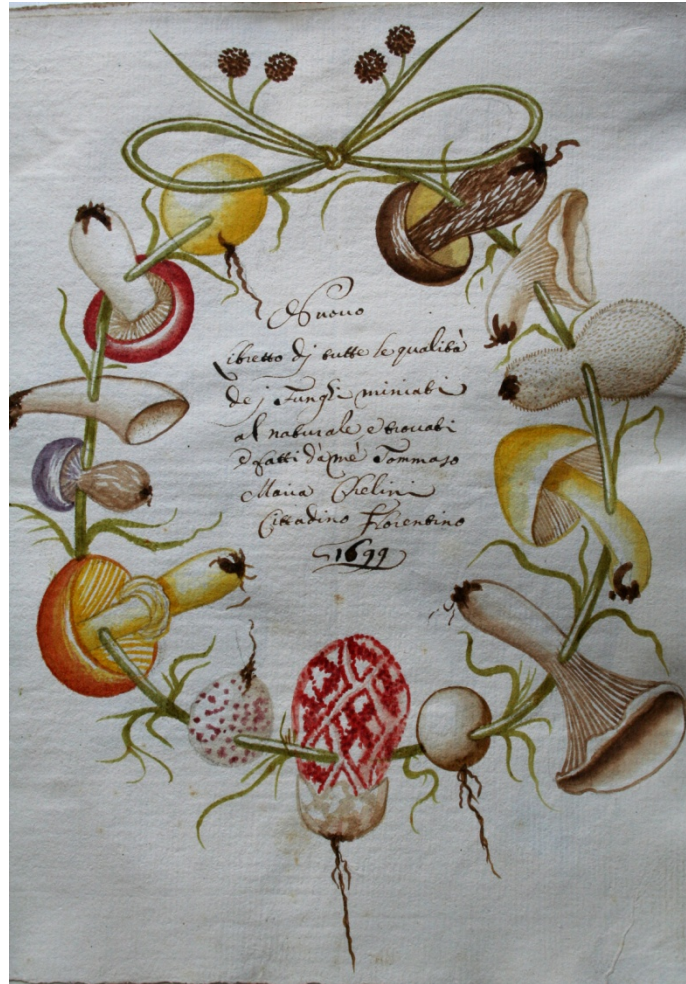 Nuouo
libretto dj tutte le qualità
de j Funghi miniati
al naturale e trouati
e fatti da mè Tommaso
Maria Chelini
Cittadino Florentino
1699